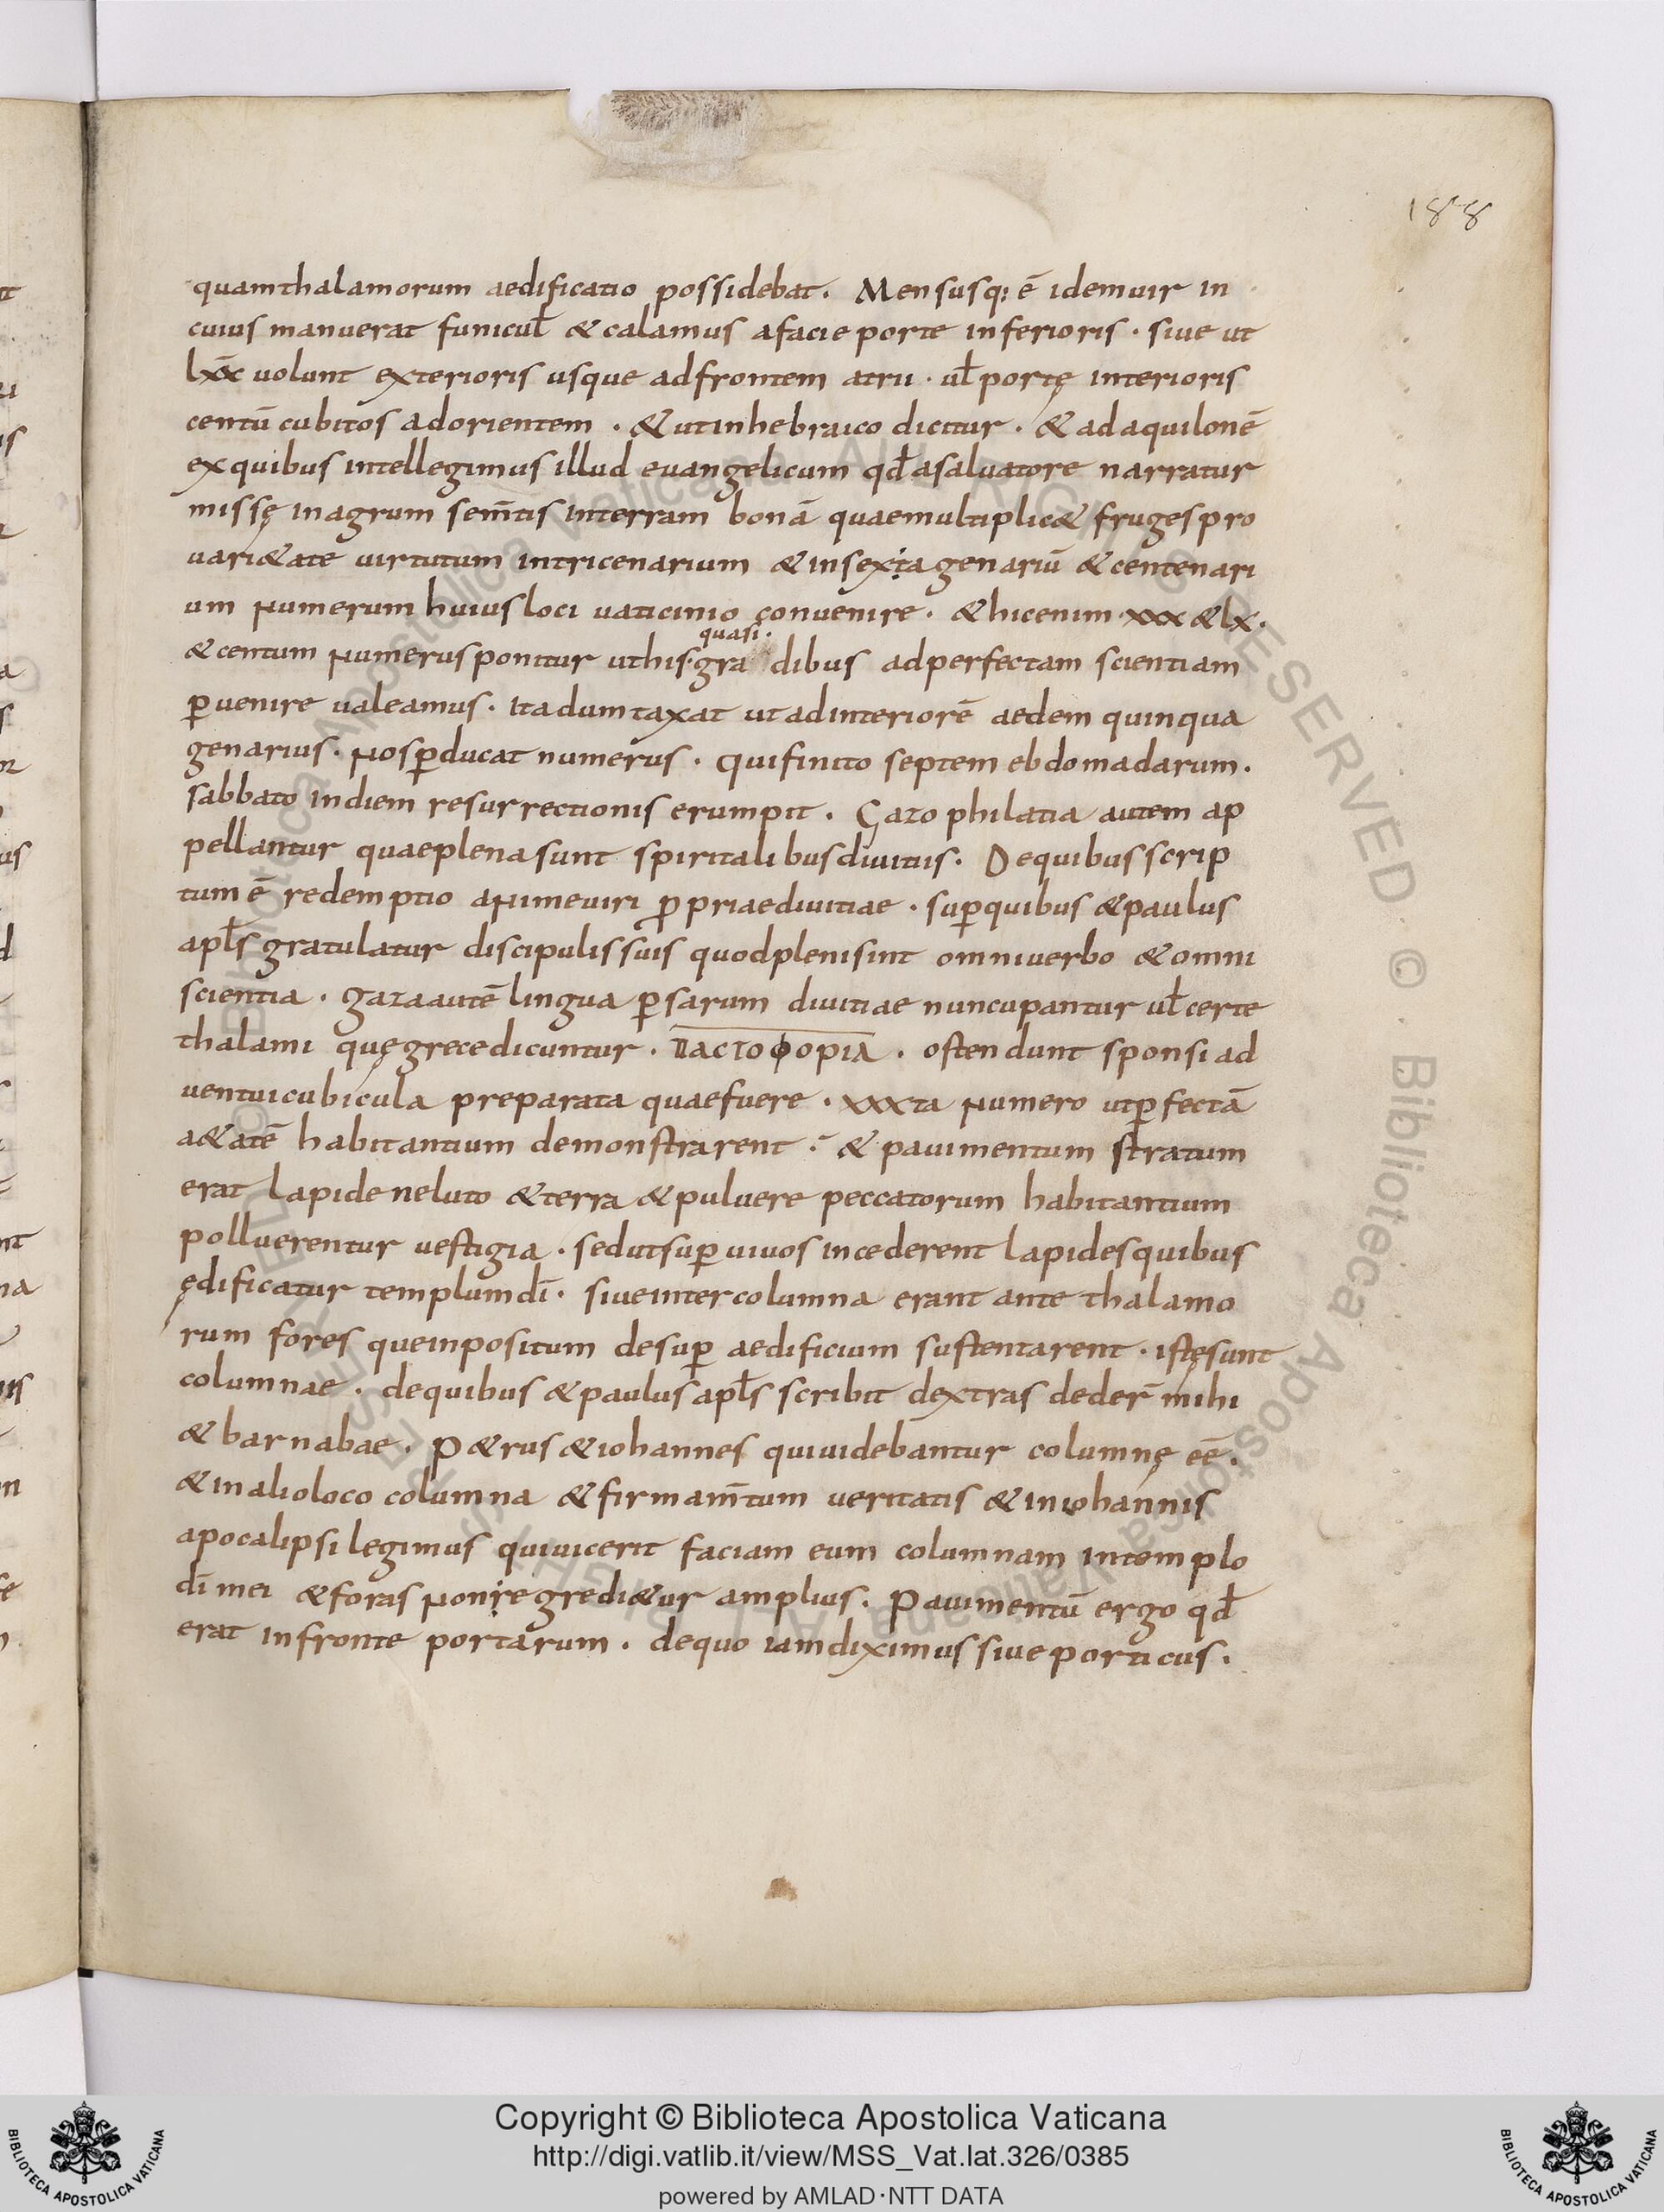 188
quamthalamorum aedificatio possidebat. Mensusq; ē idemuir in
cuius manuerat funicul̄ & calamus afacie porte inferioris · siue ut
lxx̄ uolunt exterioris usque adfrontem atrii · ul̄ portę interioris
centū cubitos adorientem · & utinhebraico dicitur · & ad aquilonē
exquibus intellegimus illud euangelicum qd̄ asaluatore narratur
missę inagrum sem̄tis interram bonā quaemultiplic& fruges pro
uari&ate uirtutum intricenarium & insexṭagenariū & centenari
um numerum huius loci uaticinio conuenire · & hicenim · xxx & lx ·
quasi ·
& centum numerus ponitur uthis · gra dibus adperfectam scientiam
p̱uenire ualeamus · ita dumtaxat ut adinteriorē aedem quinqua
genarius · nosp̱ducat numerus · quifinito septem ebdomadarum ·
sabbato indiem resurrectionis erumpit · Gazophilatia autem ap
pellantur quaeplena sunt spiritalibus diuitiis · Dequibus scrip
tum ē redemptio animeuiri ꝓpriaediuitiae · sup̱quibus & paulus
apl̄s gratulatur discipulis suis quodplenisint omniuerbo & omni
scientia · gazaautē lingua p̱sarum diuitiae nuncupantur ul̄ certe
thalami quęgrecedicuntur · ΠΑCΤΟΦΟΡΙΑ · ostendunt sponsi ad
uentuicubicula preparata quaefuere · xxxta numero utp̱fectā
a&atē habitantium demonstrarent · & pauimentum stratum
erat lapide neluto & terra & puluere peccatorum habitantium
polluerentur uestigia · sedutsup̱ uiuos incederent lapidesquibus
ędificatur templumdī · siueintercolumna erant ante thalamo
rum fores queinpositum desup̱ aedificium sustentarent · istęsunt
columnae · dequibus & paulus apl̄s scribit dextras deder̄ mihi
& barnabae · P&rus & iohannes quiuidebantur columnę eē ·
& inalioloco columna & firmam̄tum ueritatis & iniohannis
apocalipsi legimus quiuicerit faciam eum columnam intemplo
dī mei & foras noniregredi&ur amplius · Pauimentū ergo qd̄
erat infronte portarum · dequo iamdiximus siue porticus ·
Copyright © Biblioteca Apostolica Vaticana
http://digi.vatlib.it/view/MSS_Vat.lat.326/0385
powered by AMLAD·NTT DATA
BIBLIOTECA APOSTOLICA VATICANA
BIBLIOTECA APOSTOLICA VATICANA